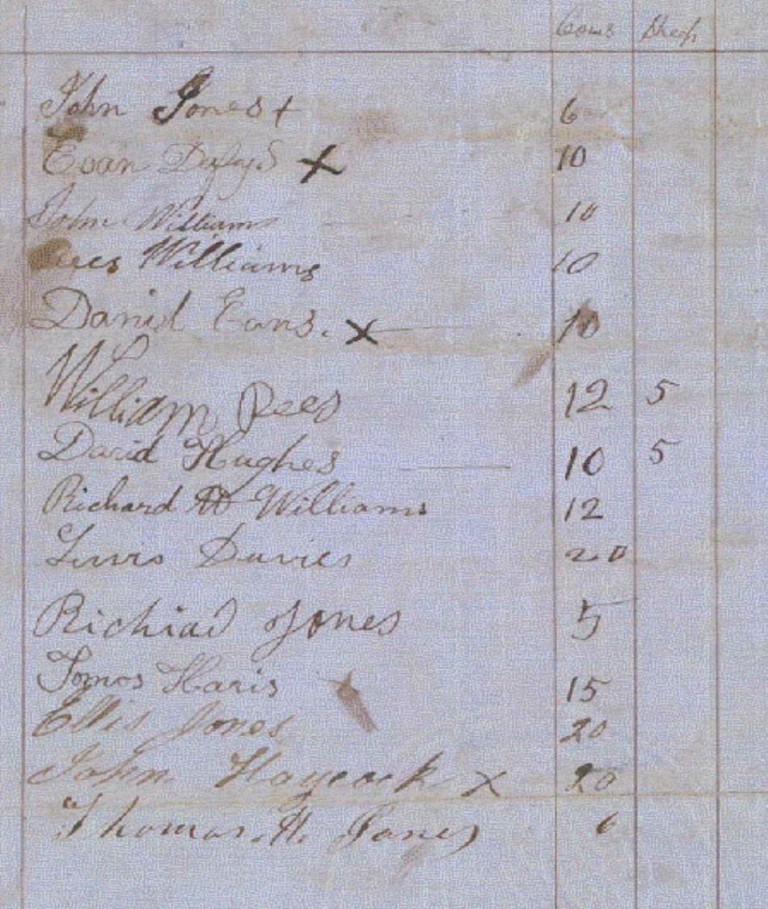 Cows Sheep
John Jones + 6
Evan X 10
John Williams 10
Rees Williams 10
David Evans. X 10
William Rees 12 5
David Hughes 10 5
Richard Williams 12
Lewis Davies 20
Richiad Jones 5
Tomos Haris 15
Ellis Jones 20
John Haycock X 20
Thomas. H. Jones 6